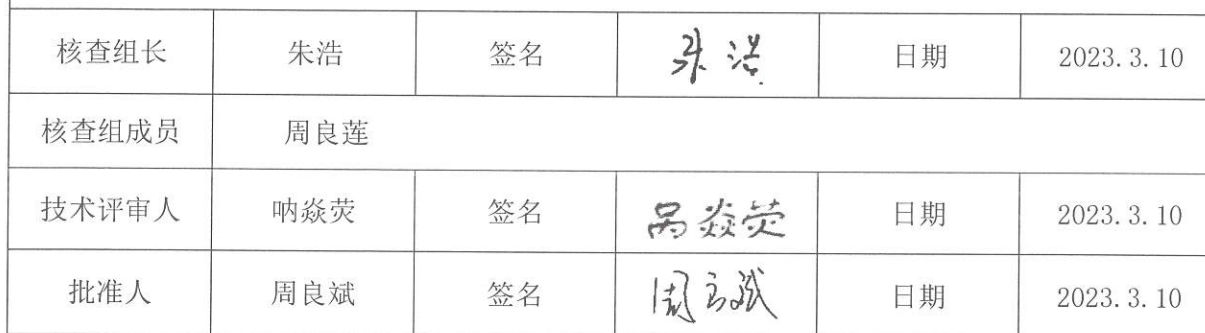 核查组长 朱浩 签名 朱浩 日期 2023.3.10
核查组成员 周良莲
技术评审人 呐焱荧 签名 呙焱荧 日期 2023.3.10
批准人 周良斌 签名 周良斌 日期 2023.3.10